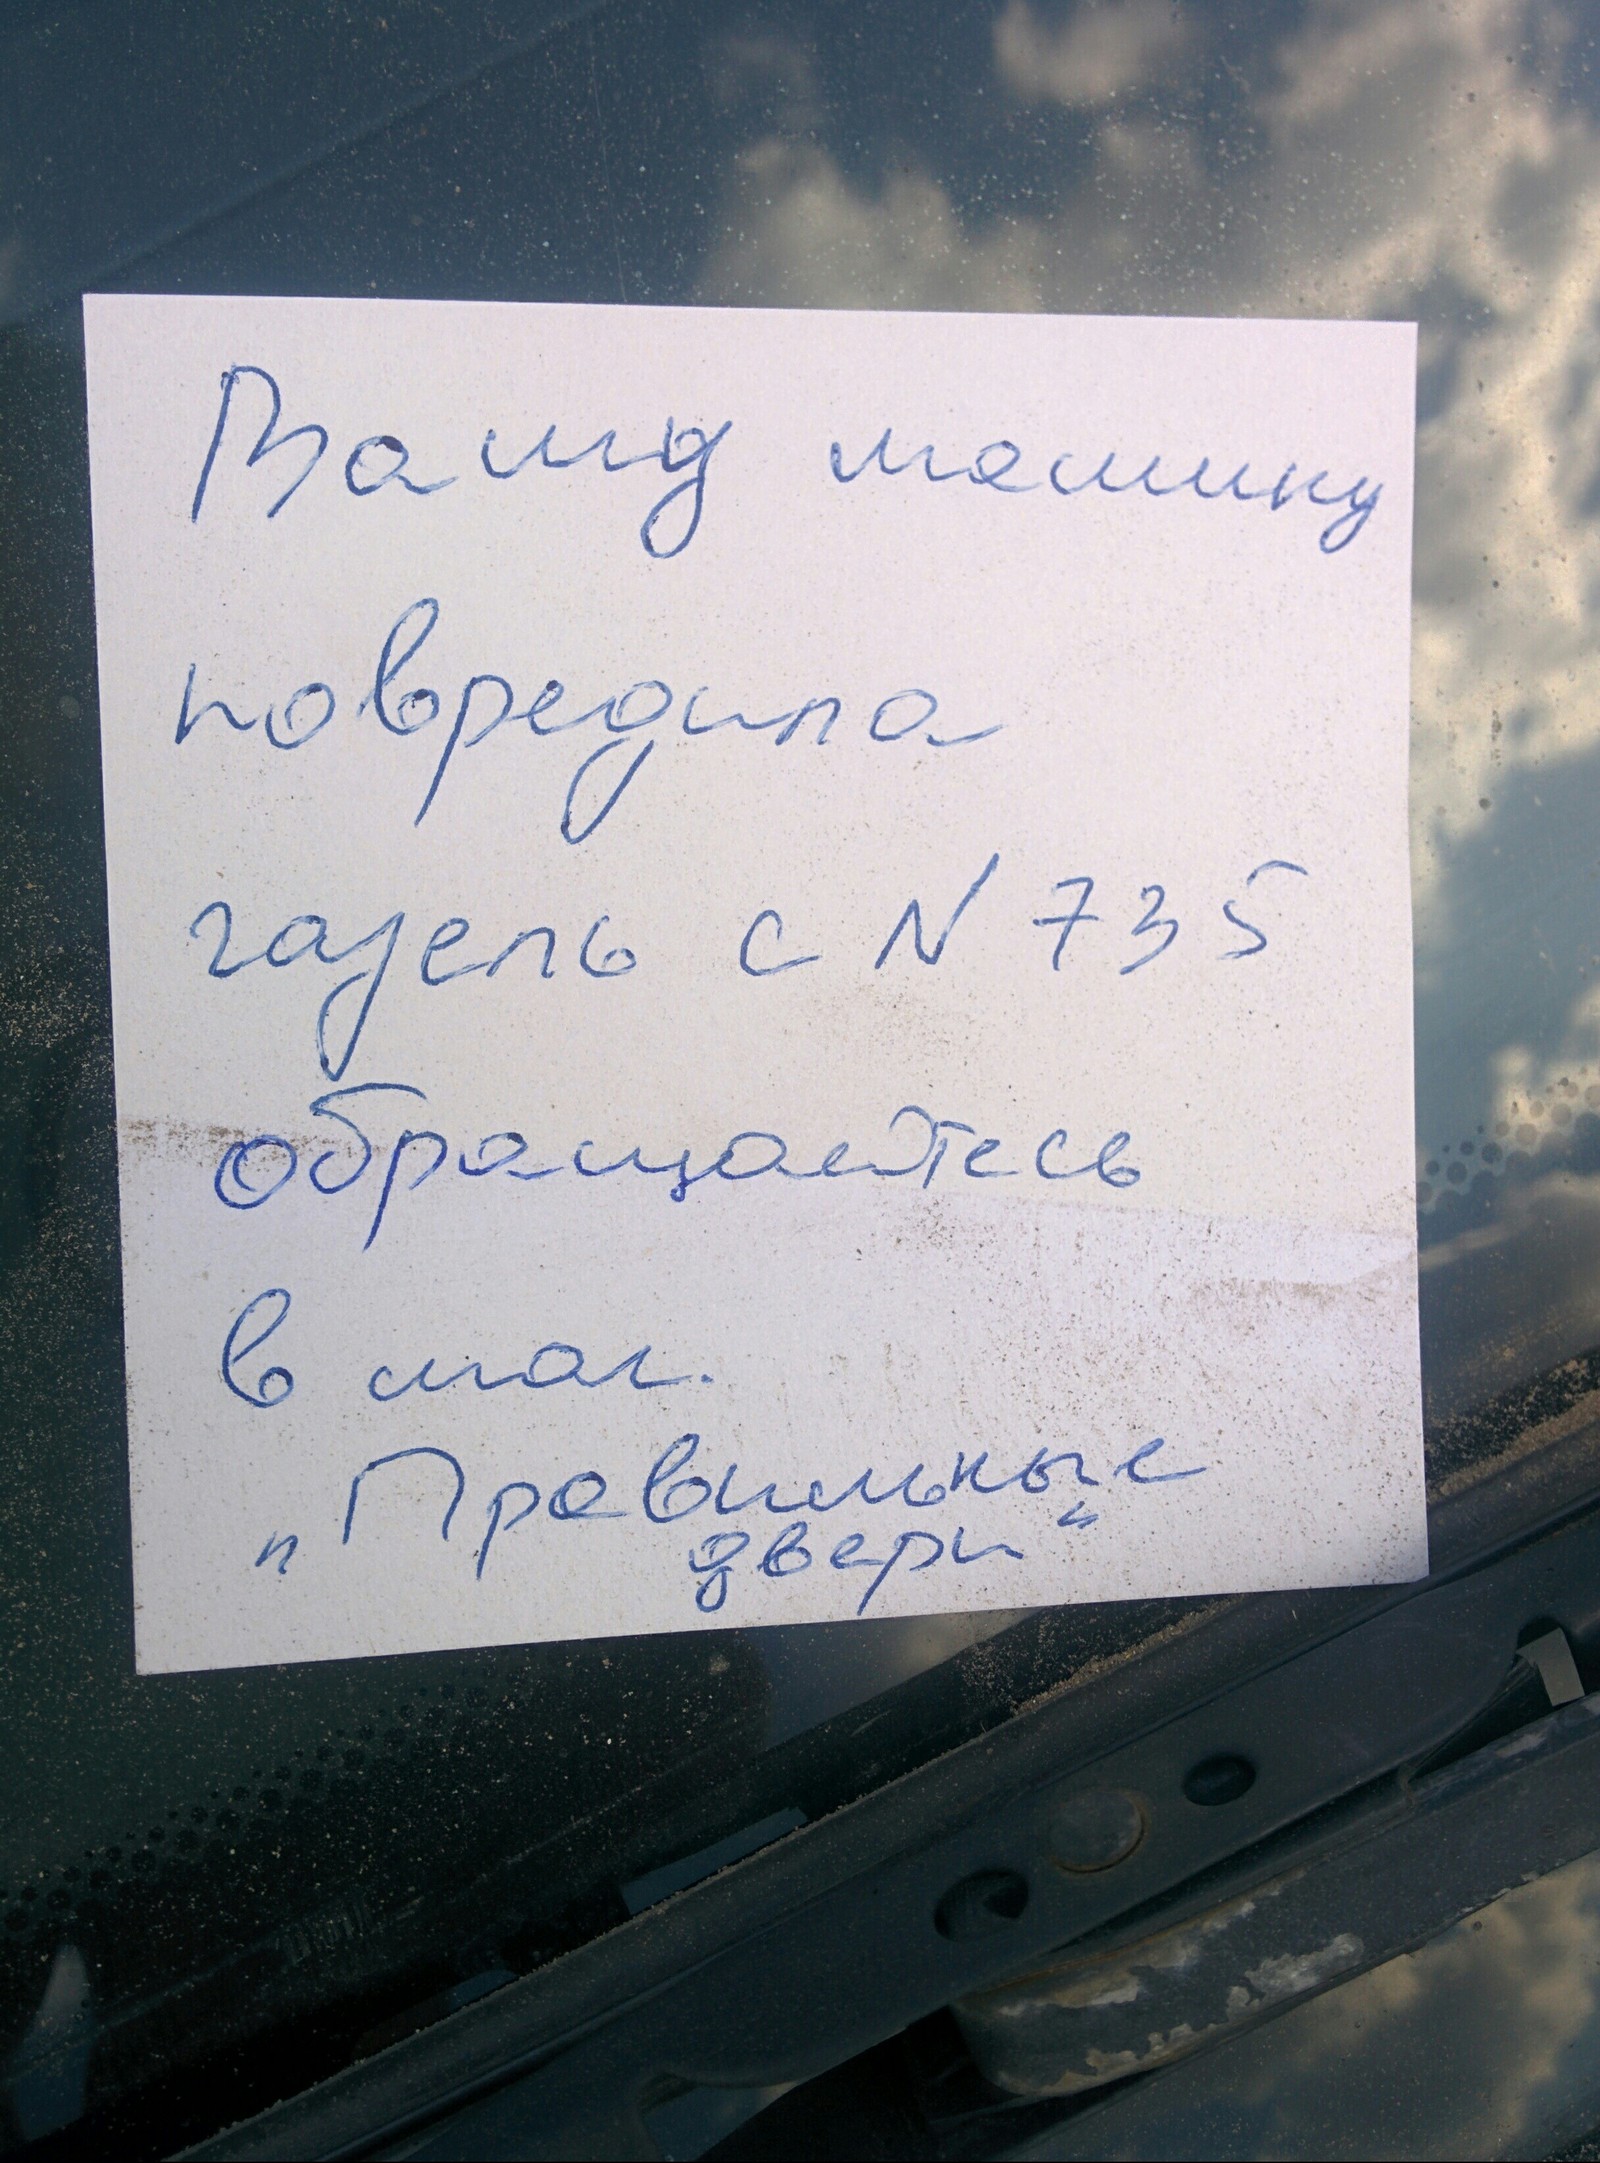 Вашу машину
повредила
газель с N 735
обращайтесь
в маг.
„Правильные
двери“